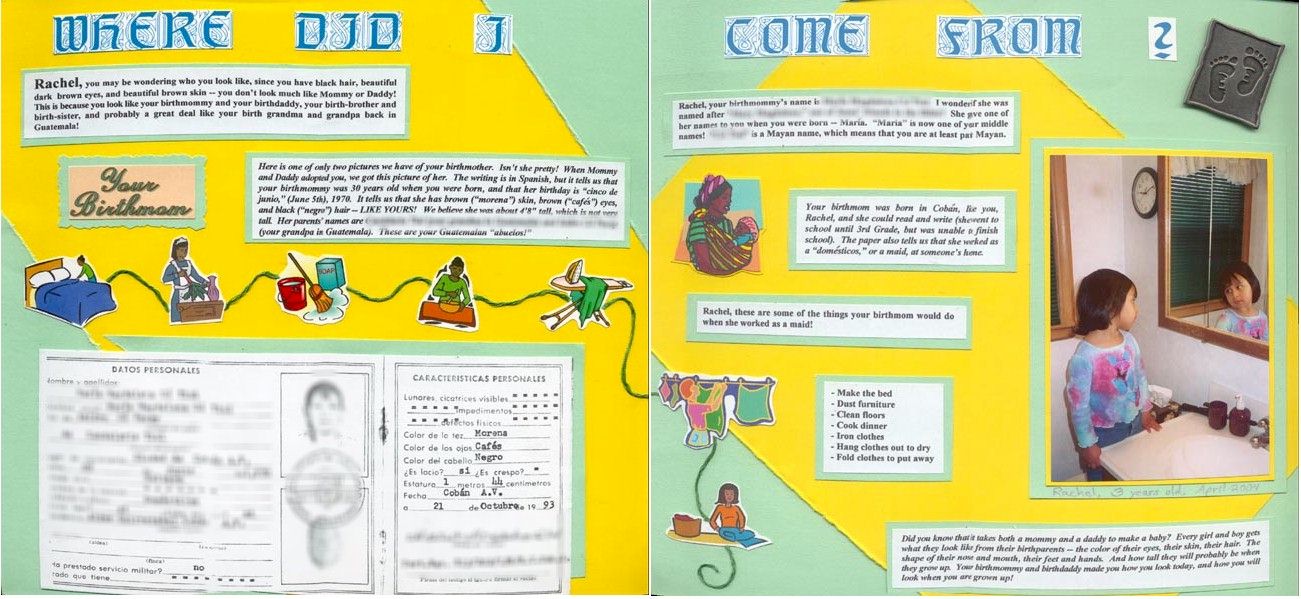 WHERE DID I
Rachel, you may be wondering who you look like, since you have black hair, beautiful
dark brown eyes, and beautiful brown skin -- you don't look much like Mommy or Daddy!
This is because you look like your birthmommy and your birthdaddy, your birth-brother and
birth-sister, and probably a great deal like your birth grandma and grandpa back in
Guatemala!
Your
Birthmom
Here is one of only two pictures we have of your birthmother. Isn't she pretty! When Mommy
and Daddy adopted you, we got this picture of her. The writing is in Spanish, but it tells us that
your birthmommy was 30 years old when you were born, and that her birthday is "cinco de
junio," (June 5th), 1970. It tells us that she has brown ("morena") skin, brown ("cafés") eyes,
and black ("negro") hair -- LIKE YOURS! We believe she was about 4'8" tall, which is not very
tall. Her parents' names are
(your grandpa in Guatemala). These are your Guatemalan "abuelos!"
SOAP
DATOS PERSONALES
Nombre y apellidos
(Aldea)
(Finca)
Ha prestado servicio militar? no
rado que tiene
CARACTERISTICAS PERSONALES
Lunares, cicatrices visibles
Impedimentos
defectos físicos
Color de la tez Morena
Color de los ojos Cafés
Color del cabello Negro
¿Es lacio? si ¿Es crespo? -
Estatura 1 metros 44 centímetros
Fecha Cobán A.V.
a 21 de Octubre de 19 93
COME FROM ?
Rachel, your birthmommy's name is I wonder if she was
named after She gve one of
her names to you when you were born -- María. "Maria" is now one of your middle
names! is a Mayan name, which means that you are at least part Mayan.
Your birthmom was born in Cobán, like you,
Rachel, and she could read and write (she went to
school until 3rd Grade, but was unable to finish
school). The paper also tells us that she worked as
a "domésticos," or a maid, at someone's home.
Rachel, these are some of the things your birthmom would do
when she worked as a maid!
- Make the bed
- Dust furniture
- Clean floors
- Cook dinner
- Iron clothes
- Hang clothes out to dry
- Fold clothes to put away
Rachel, 3 years old. April 2004
Did you know that it takes both a mommy and a daddy to make a baby? Every girl and boy gets
what they look like from their birthparents -- the color of their eyes, their skin, their hair. The
shape of their nose and mouth, their feet and hands. And how tall they will probably be when
they grow up. Your birthmommy and birthdaddy made you how you look today, and how you will
look when you are grown up!